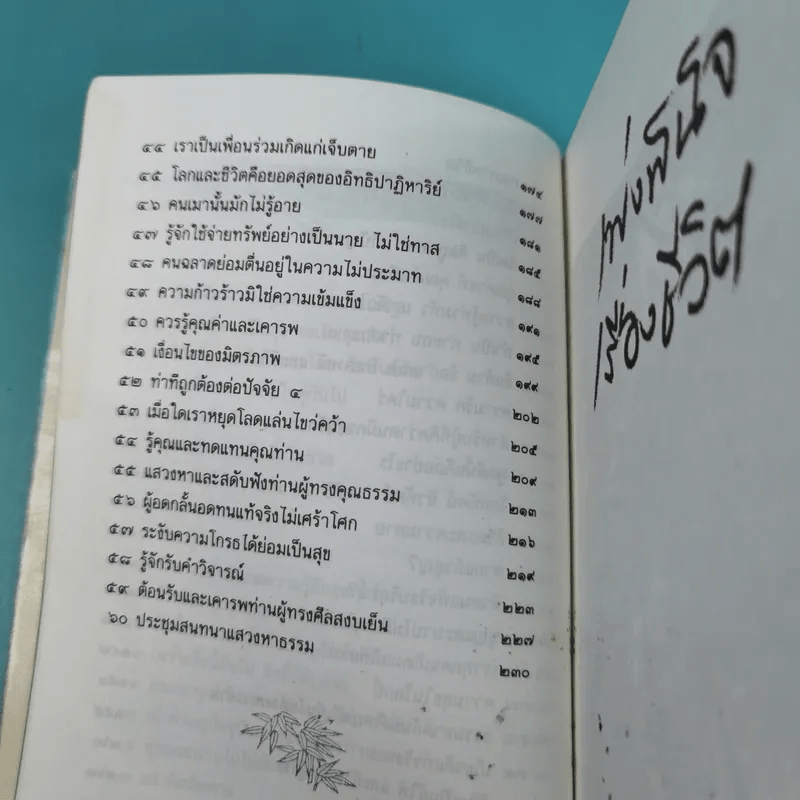 ๔๔ เราเป็นเพื่อนร่วมเกิดแก่เจ็บตาย ๑๗๔
๔๕ โลกและชีวิตคือยอดสุดของอิทธิปาฏิหาริย์ ๑๗๗
๔๖ คนเมานั้นมักไม่รู้อาย ๑๘๑
๔๗ รู้จักใช้จ่ายทรัพย์อย่างเป็นนาย ไม่ใช่ทาส ๑๘๕
๔๘ คนฉลาดย่อมตื่นอยู่ในความไม่ประมาท ๑๘๘
๔๙ ความก้าวร้าวมิใช่ความเข้มแข็ง ๑๙๑
๕๐ ควรรู้คุณค่าและเคารพ ๑๙๕
๕๑ เงื่อนไขของมิตรภาพ ๑๙๙
๕๒ ท่าทีถูกต้องต่อปัจจัย ๔ ๒๐๒
๕๓ เมื่อใดเราหยุดโลดแล่นไขว่คว้า ๒๐๕
๕๔ รู้คุณและทดแทนคุณท่าน ๒๐๙
๕๕ แสวงหาและสดับฟังท่านผู้ทรงคุณธรรม ๒๑๓
๕๖ ผู้อดกลั้นอดทนแท้จริงไม่เศร้าโศก ๒๑๖
๕๗ ระงับความโกรธได้ย่อมเป็นสุข ๒๑๙
๕๘ รู้จักรับคำวิจารณ์ ๒๒๓
๕๙ ต้อนรับและเคารพท่านผู้ทรงศีลสงบเย็น ๒๒๗
๖๐ ประชุมสนทนาแสวงหาธรรม ๒๓๐
เพ่งพินิจ
เรื่องชีวิต